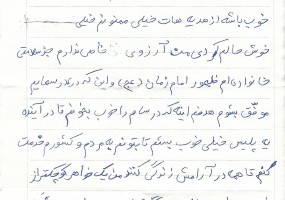 خوب باشه از هدیه هات خیلی ممنونم خیلی
خوش حالم کردی من آرزوی خاصی ندارم جز سلامتی
خانواده ام ظهور امام زمان (عج) و این که در درسهایم
موفق بشوم هدفم اینکه درسام را خوب بخونم تا در آینده
یه پلیس خیلی خوب بشم تا بتونم به مردم و کشورم خدمت
کنم تا همه در آرامش زندگی کنند من یک خواهر کوچکتر از